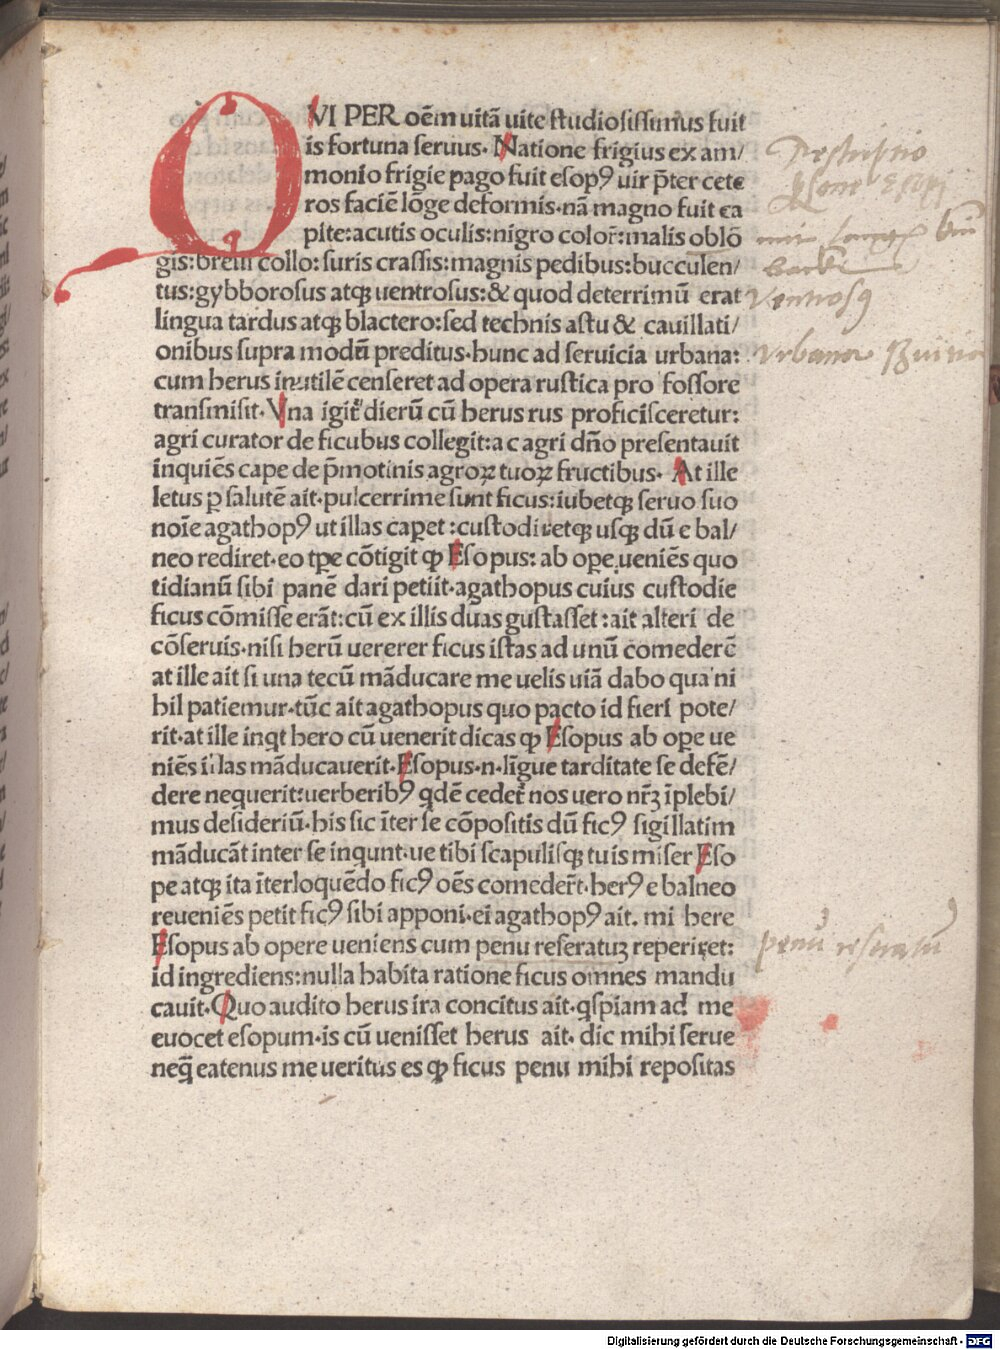 QVI PER oēm uitā uite studiosissimus fuit
is fortuna seruus. Natione frigius ex am/
monio frigie pago fuit esopꝰ uir p̄ter cete
ros faciē lōge deformis.nā magno fuit ca
pite:acutis oculis:nigro color̄:malis oblō
gis:breui collo:suris crassis:magnis pedibus:bucculen/
tus:gybborosus atqꝫ uentrosus:& quod deterrimū erat
lingua tardus atqꝫ blactero:sed technis astu & cauillati/
onibus supra modū preditus.hunc ad seruicia urbana:
cum herus inutilē censeret ad opera rustica pro fossore
transmisit.Vna igit̄ dierū cū herus rus proficisceretur:
agri curator de ficubus collegit:ac agri dn̄o presentauit
inquiēs cape de p̄motinis agroꝝ tuoꝝ fructibus. At ille
letus ꝑ salutē ait.pulcerrime sunt ficus:iubetqꝫ seruo suo
noīe agathopꝰ ut illas caꝑet:custodiretqꝫ usqꝫ dū e bal/
neo rediret.eo tꝑe cōtigit ꝙ Esopus: ab oꝑe ueniēs quo
tidianū sibi panē dari petiit.agathopus cuius custodie
ficus cōmisse erāt:cū ex illis duas gustasset:ait alteri de
cōseruis.nisi herū uererer ficus istas ad unū comederē
at ille ait si una tecū māducare me uelis uiā dabo qua ni
hil patiemur.tūc ait agathopus quo pacto id fieri pote/
rit.at ille inqt hero cū uenerit dicas ꝙ Esopus ab oꝑe ue
niēs illas māducauerit.Esopus.n.līgue tarditate se defē/
dere nequerit:uerberibꝰ qdē cedet̄ nos uero nr̄ꝫ īplebi/
mus desideriū.his sic īter se cōpositis dū ficꝰ sigillatim
māducāt inter se inqunt.ue tibi scapulisqꝫ tuis miser Eso
pe atqꝫ ita īterloquēdo ficꝰ oēs comeder̄t.herꝰ e balneo
reueniēs petit ficꝰ sibi apponi.ei agathopꝰ ait. mi here
Esopus ab opere ueniens cum penu reseratuꝫ reperiret:
id ingrediens:nulla habita ratione ficus omnes mandu
cauit.Quo audito herus ira concitus ait.qspiam ad me
euocet esopum.is cū uenisset herus ait. dic mihi serue
neq̄ eatenus me ueritus es ꝙ ficus penu mihi repositas
Descriptio
psone Esopi
back
Ventrosꝰ
Vrbana
penū reseratū
Digitalisierung gefördert durch die Deutsche Forschungsgemeinschaft - DFG